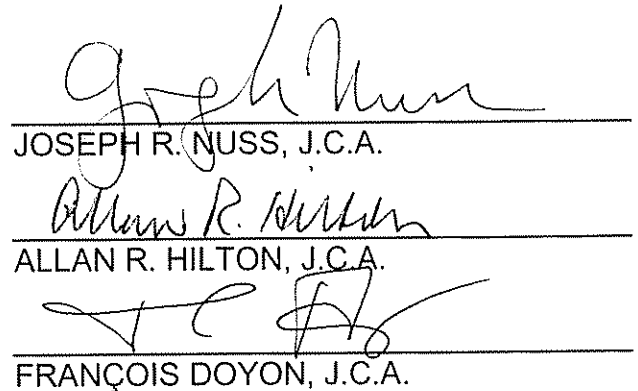 Joseph Nuss
JOSEPH R. NUSS, J.C.A.
Allan R. Hilton
ALLAN R. HILTON, J.C.A.
FRANÇOIS DOYON, J.C.A.